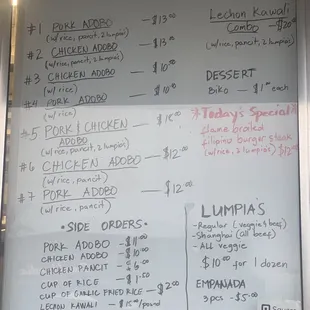 #1 PORK ADOBO — $13.00
(w/rice, pancit, 2 lumpias)
#2 CHICKEN ADOBO — $13
(w/rice, pancit, 2 lumpias)
#3 CHICKEN ADOBO — $10.00
(w/rice)
#4 PORK ADOBO — $10.00
(w/rice)
#5 PORK & CHICKEN
ADOBO
(w/rice, pancit, 2 lumpias)
#6 CHICKEN ADOBO — $12.00
(w/rice, pancit)
#7 PORK ADOBO — $12.00
(w/rice, pancit)
• SIDE ORDERS •
PORK ADOBO — $11.00
CHICKEN ADOBO — $10.00
CHICKEN PANCIT
CUP OF RICE — $1.50
CUP OF GARLIC FRIED RICE — $2.00
LECHON KAWALI /pound
Lechon Kawali
COMBO — $20.00
(w/rice, pancit, 2 lumpias)
DESSERT
Biko — each
*Today's Special*
flame broiled
filipino burger steak
(w/rice, 2 lumpias) $12
LUMPIA'S
- Regular (veggie & beef)
- Shanghai (all beef)
- ALL Veggie
$10.00 for 1 dozen
EMPANADA
3 pcs - $5.00